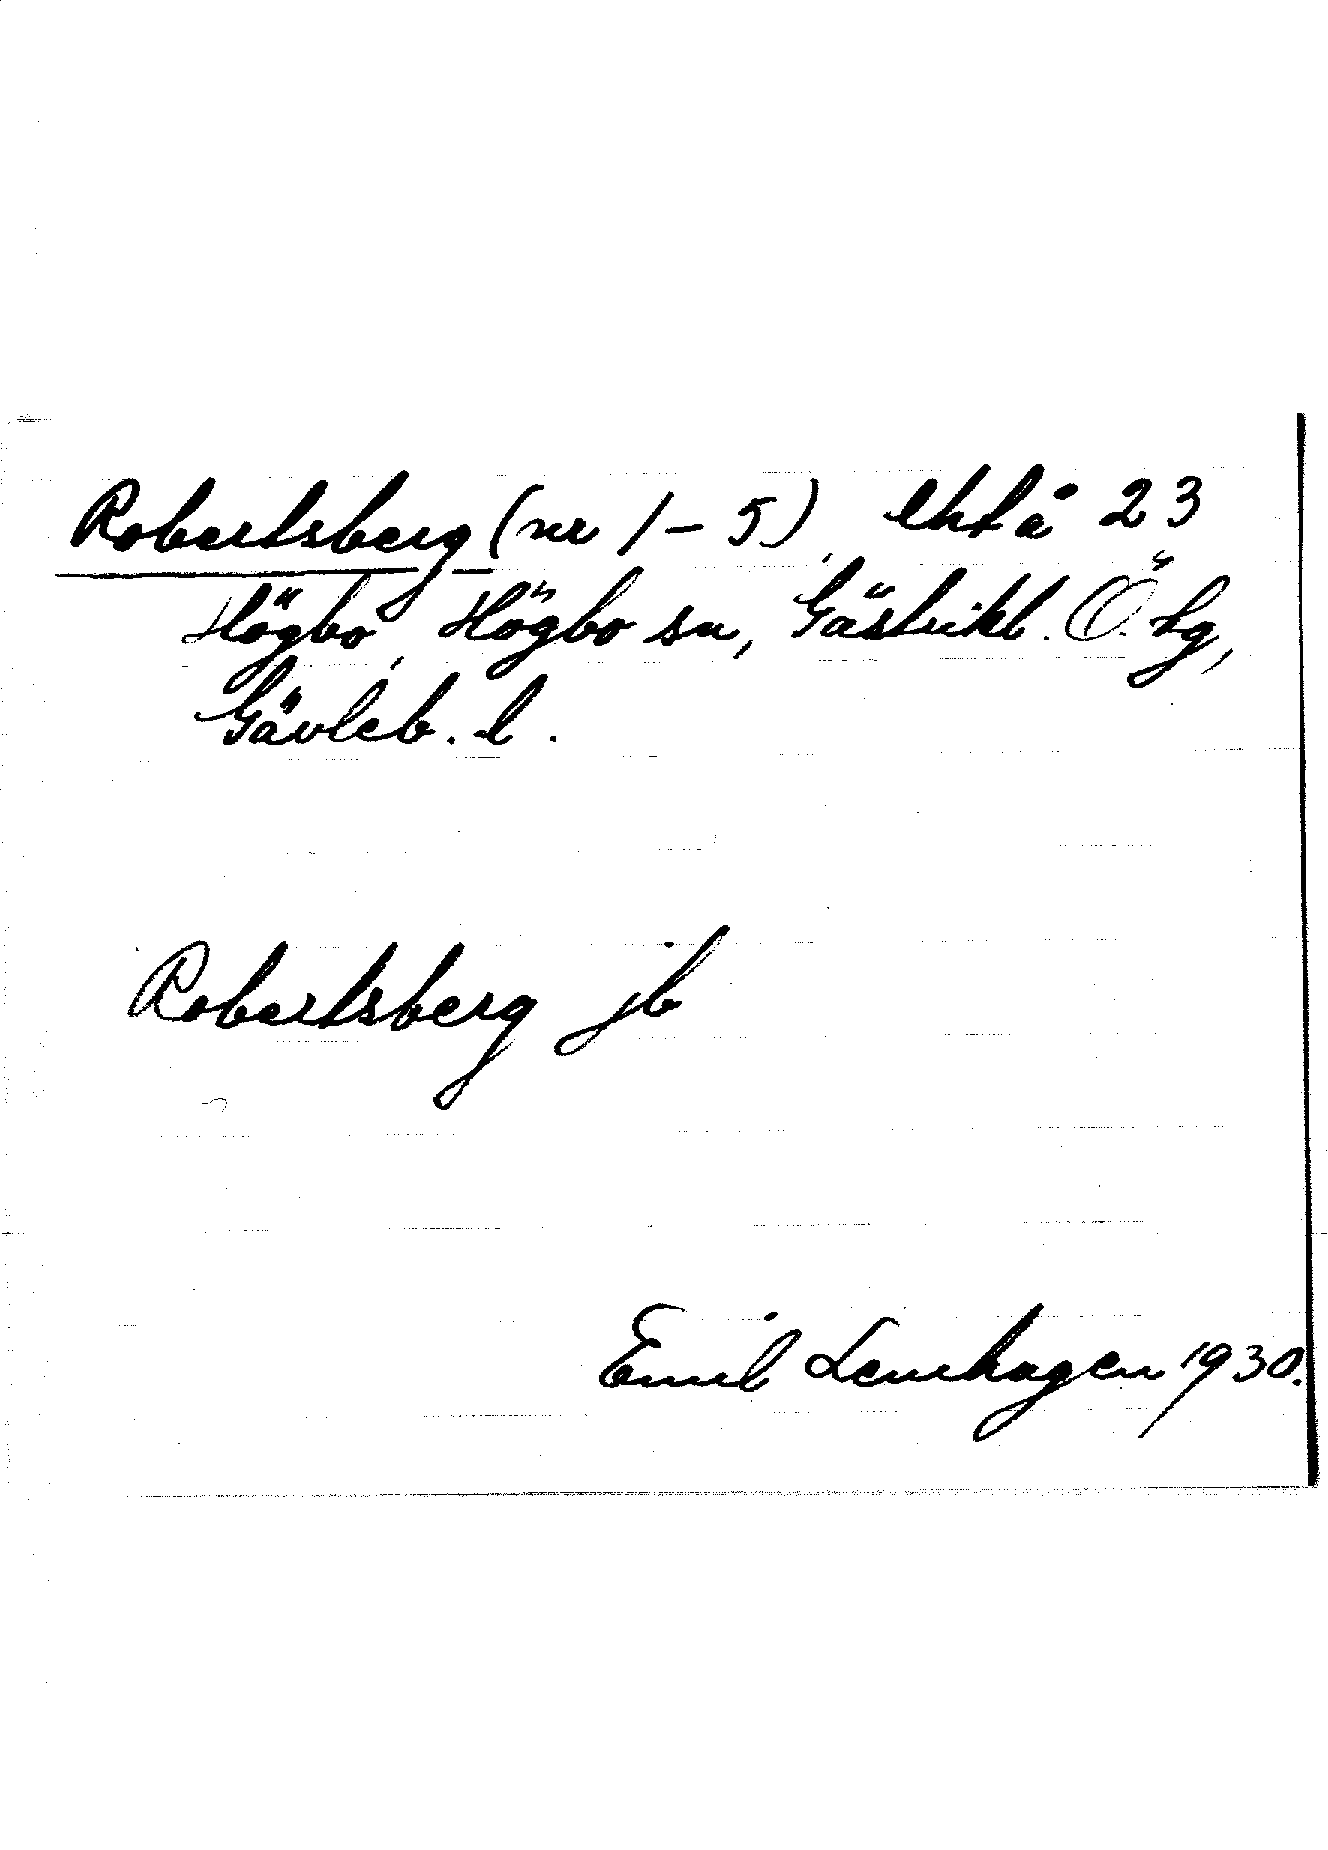 Robertsberg (nr 1 – 5), lhtå 23
Högbo, Högbo sn, Gästrikl. Ö. tg,
Gävleb. l.
Robertsberg jb
Emil Lenhagen 1930.